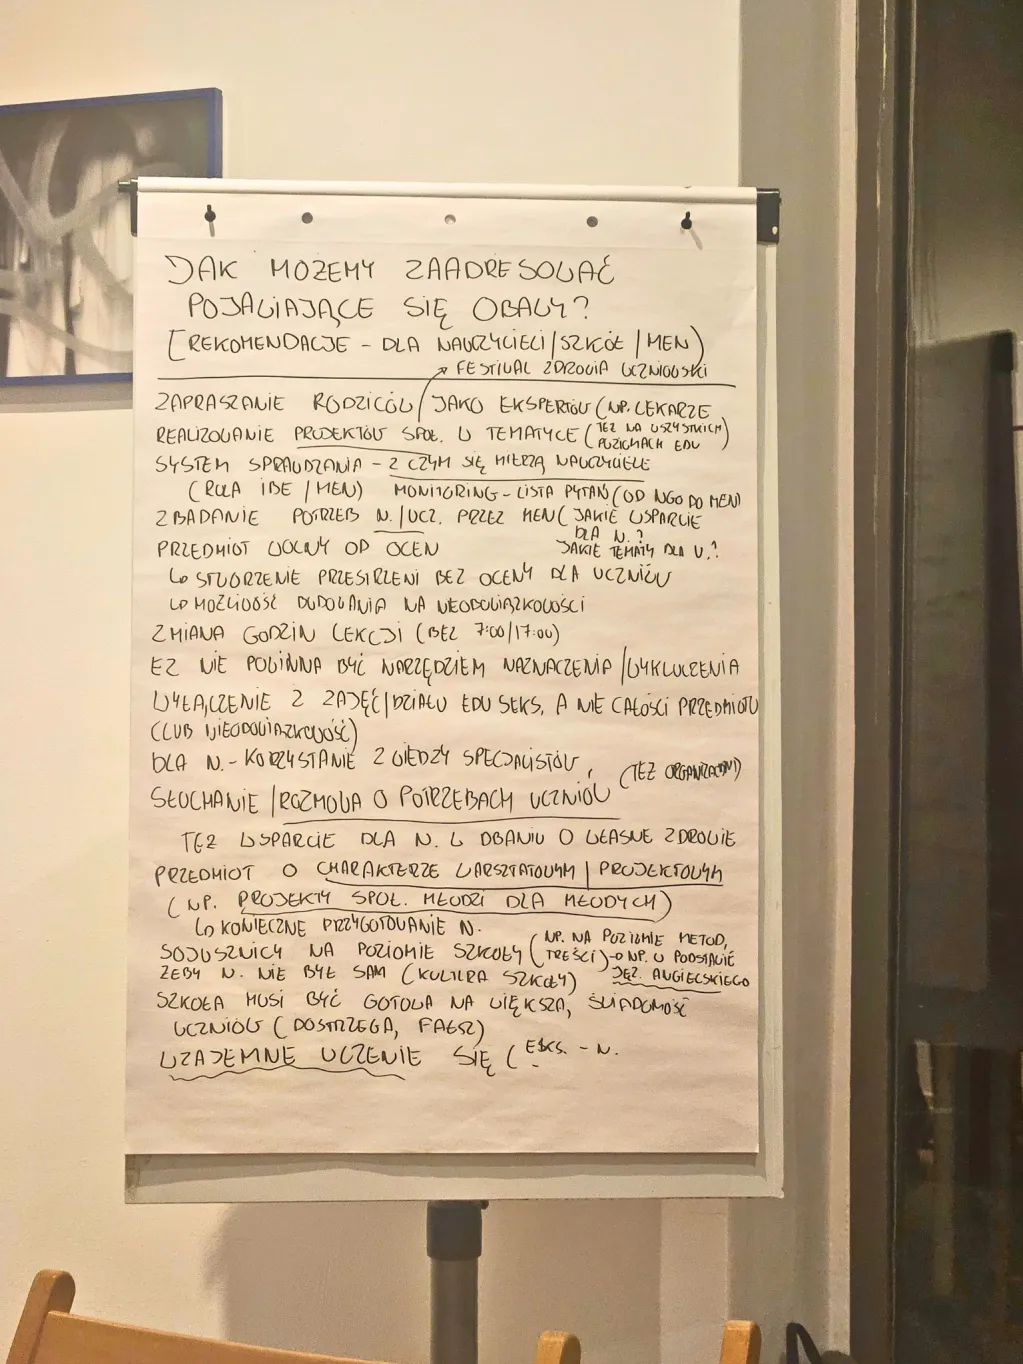 JAK MOŻEMY ZAADRESOWAĆ
POJAWIAJĄCE SIĘ OBAWY?
[REKOMENDACJE - DLA NAUCZYCIELI/SZKÓŁ/MEN)
→ FESTIWAL ZDROWIA UCZNIOWSKI
ZAPRASZANIE RODZICÓW/JAKO EKSPERTÓW (NP. LEKARZE
REALIZOWANIE PROJEKTÓW SPOŁ. W TEMATYCE (TEŻ NA WSZYSTKICH
POZIOMACH EDU)
SYSTEM SPRAWDZANIA - Z CZYM SIĘ MIERZĄ NAUCZYCIELE
(ROLA IBE/MEN) MONITORING - LISTA PYTAŃ (OD NGO DO MEN)
ZBADANIE POTRZEB N./UCZ. PRZEZ MEN (JAKIE WSPARCIE
DLA N.?
PRZEDMIOT WOLNY OD OCEN JAKIE TEMATY DLA U.?
↳ STWORZENIE PRZESTRZENI BEZ OCENY DLA UCZNIÓW
↳ MOŻLIWOŚĆ NA NIEOBOWIĄZKOWOŚCI
ZMIANA GODZIN LEKCJI (BEZ 7:00/17:00)
EZ NIE POWINNA BYĆ NARZĘDZIEM NAZNACZENIA/WYKLUCZENIA
WYŁĄCZENIE Z ZAJĘĆ/DZIAŁU EDU SEKS, A NIE CAŁOŚCI PRZEDMIOTU
(LUB NIEOBOWIĄZKOWOŚĆ)
DLA N. - KORZYSTANIE Z WIEDZY SPECJALISTÓW,
(TEŻ ORGANIZACJI)
SŁUCHANIE/ROZMOWA O POTRZEBACH UCZNIÓW
TEŻ WSPARCIE DLA N. W DBANIU O WŁASNE ZDROWIE
PRZEDMIOT O CHARAKTERZE WARSZTATOWYM/PROJEKTOWYM
(NP. PROJEKTY SPOŁ. MŁODZI DLA MŁODYCH)
↳ KONIECZNE PRZYGOTOWANIE N.
SOJUSZNICY NA POZIOMIE SZKOŁY (NP. NA POZIOMIE METOD,
TREŚCI) → NP. W PODSTAWIE
ŻEBY N. NIE BYŁ SAM (KULTURA SZKOŁY) JĘZ. ANGIELSKIEGO
SZKOŁA MUSI BYĆ GOTOWA NA WIĘKSZĄ, ŚWIADOMOŚĆ
UCZNIÓW (DOSTRZEGA, FAŁSZ)
WZAJEMNE UCZENIE SIĘ ( - N.